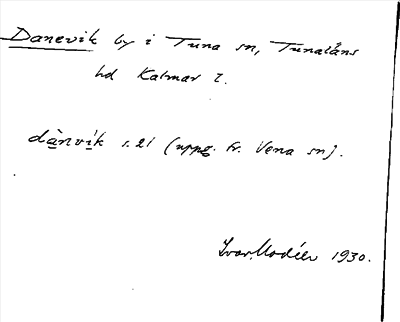 Danevik by i Tuna sn, Tunaläns
hd Kalmar l.
dànvík s. 21 (uppg. fr. Vena sn).
Ivar Modéer 1930.